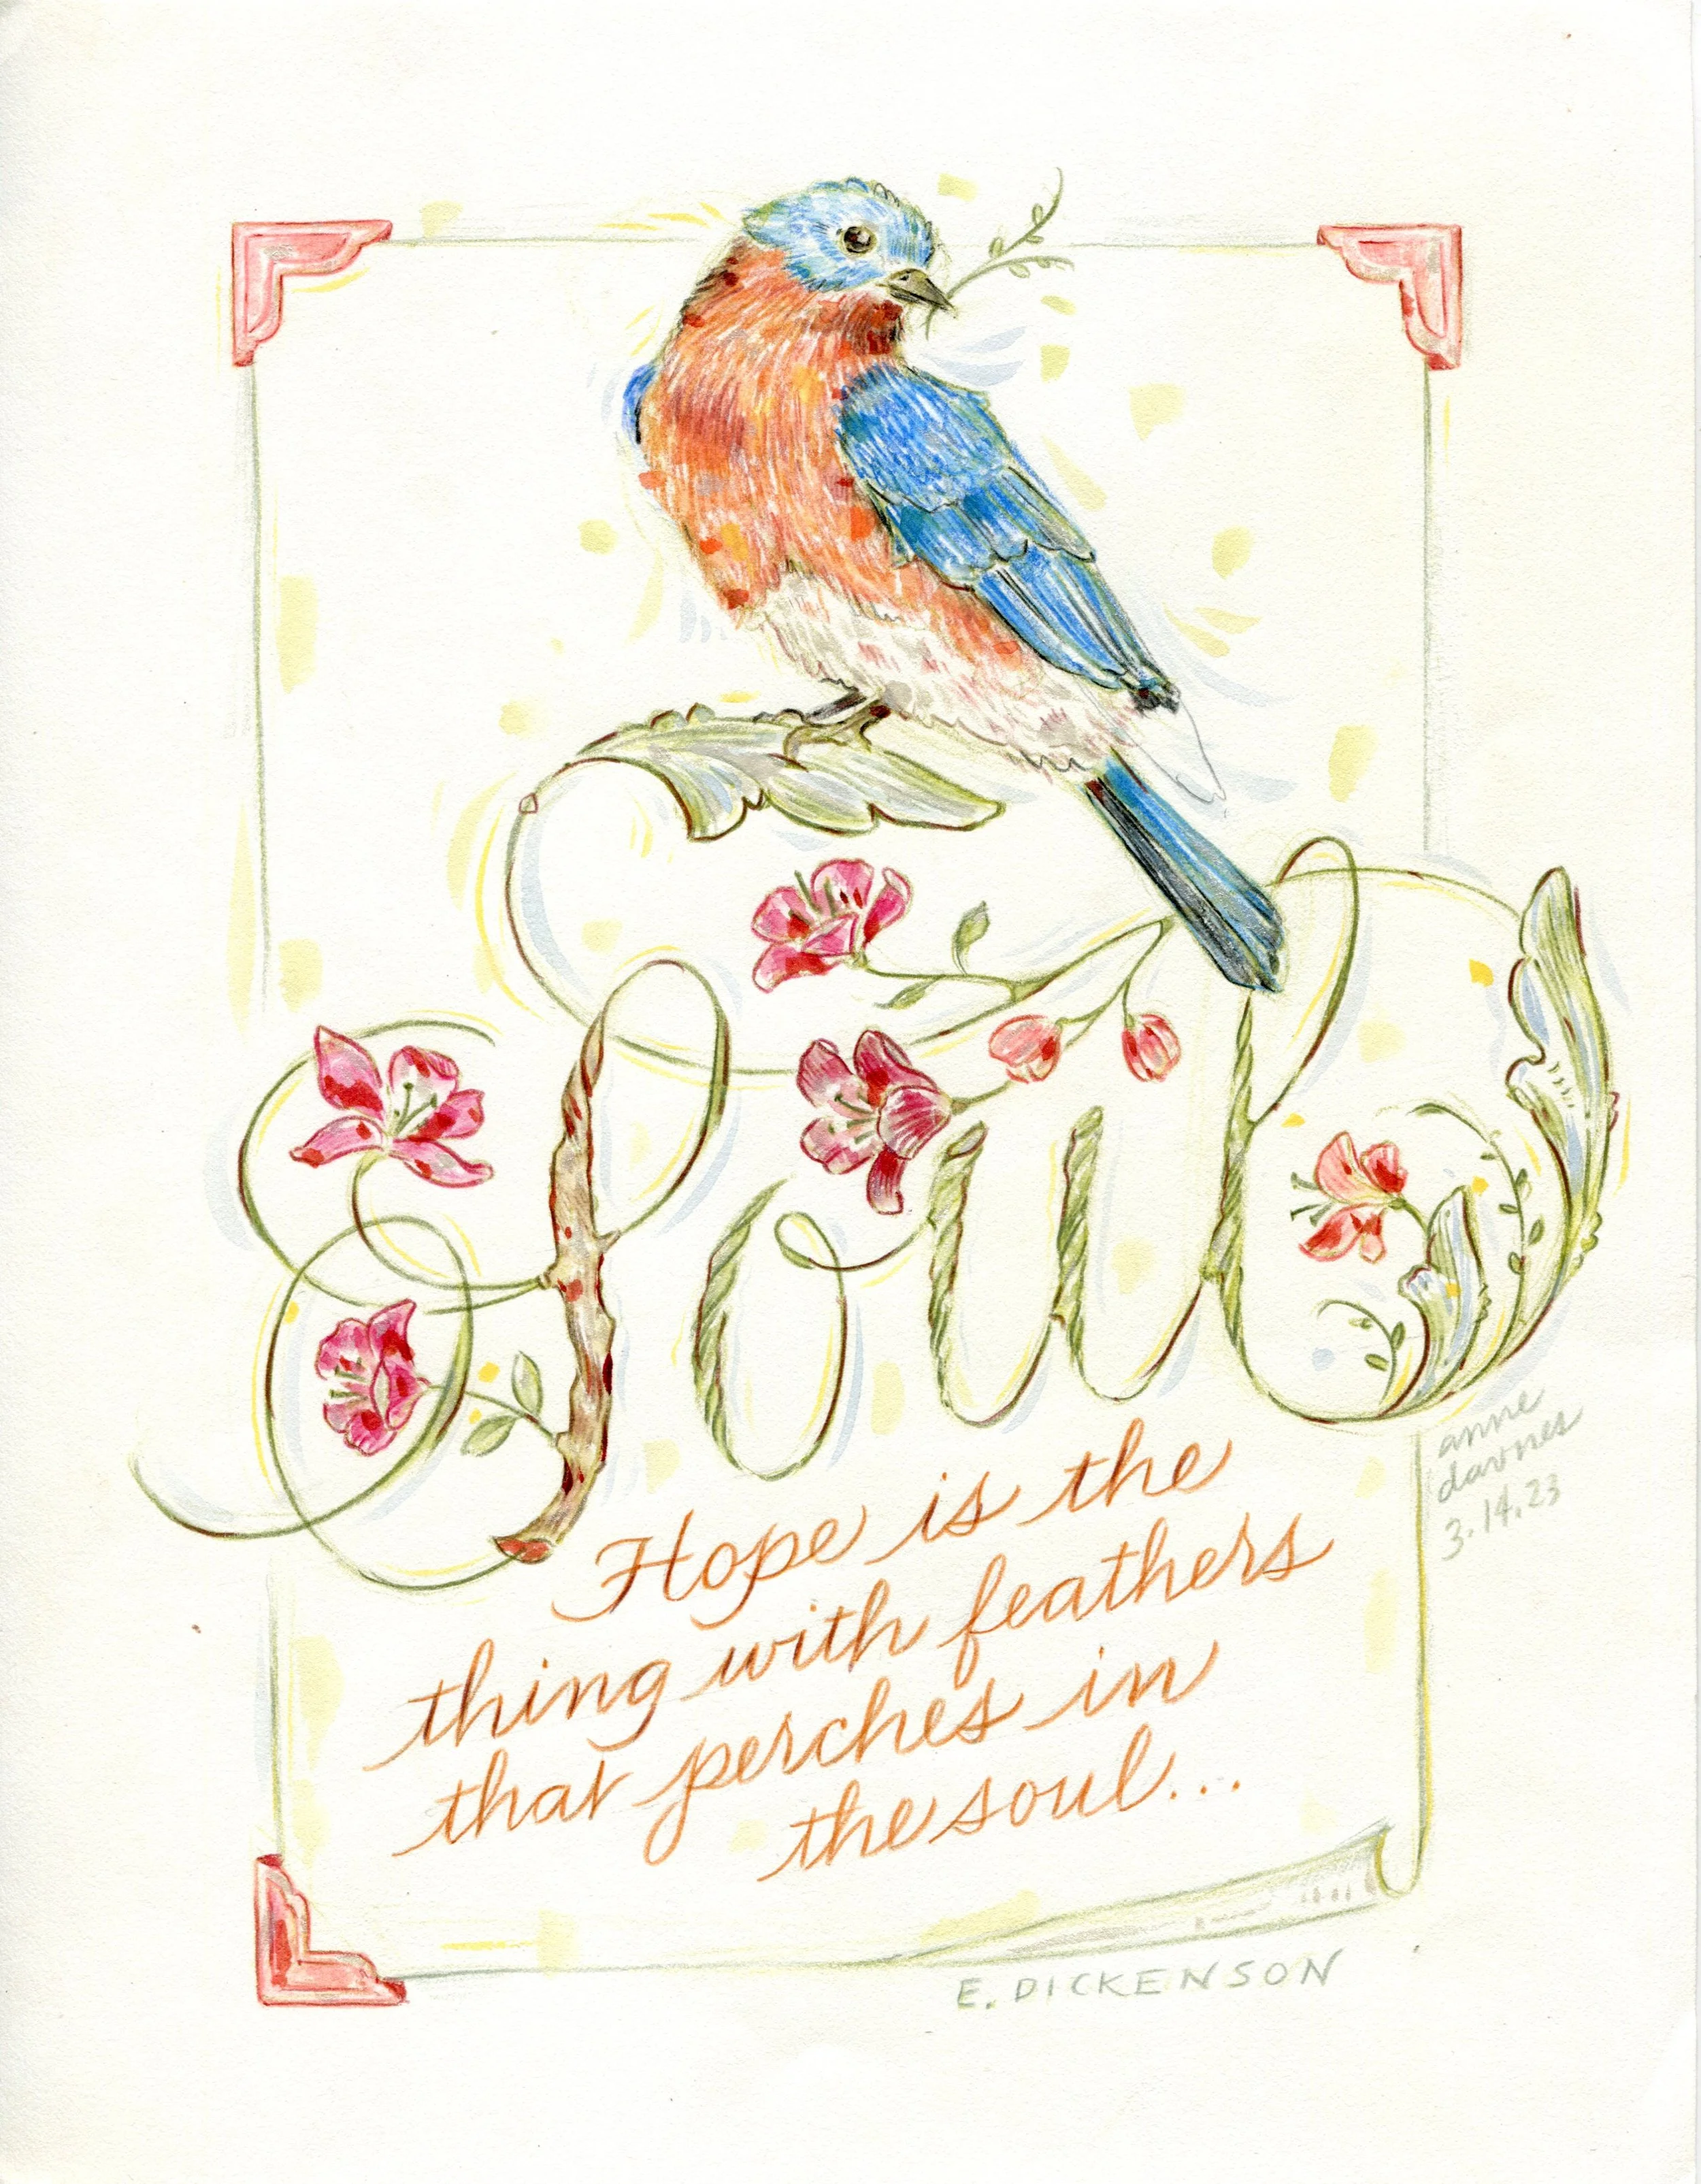 Soul
anne
davnes
3.14.23
Hope is the
thing with feathers
that perches in
the soul...
E. DICKENSON